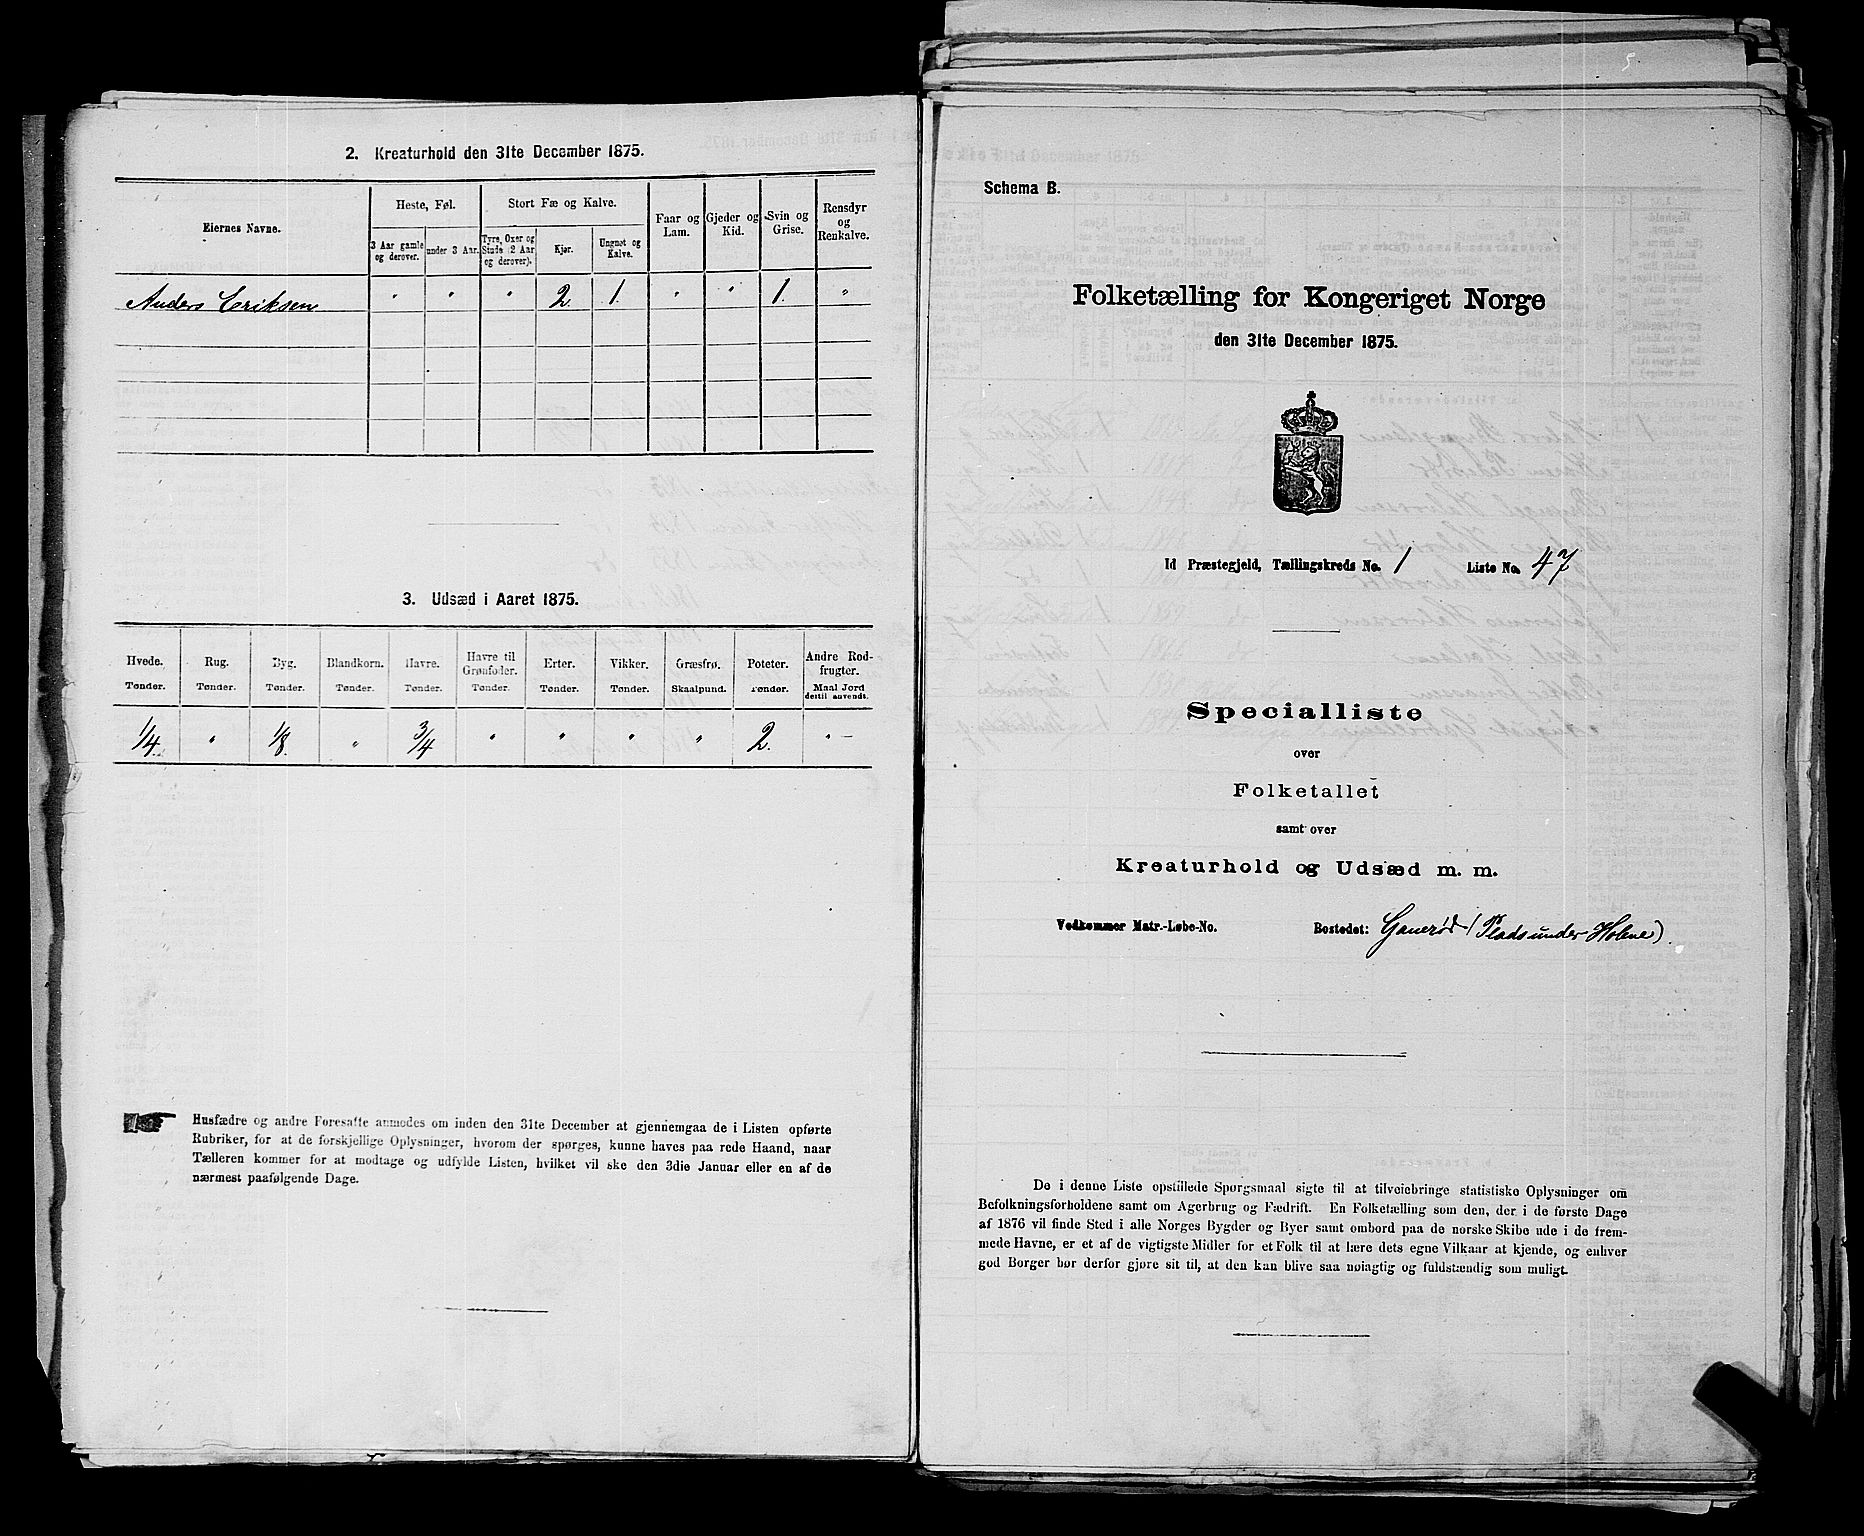 2. Kreaturhold den 31te December 1875.
Eiernes Navne.
Heste, Føl.
3 Aar gamle og derover.
under 3 Aar.
Stort Fæ og Kalve.
Tyre, Oxer og Stude (2 Aar og derover).
Kjør.
Ungnøt og Kalve.
Faar og Lam.
Gjeder og Kid.
Svin og Grise.
Rensdyr og Renkalve.
Anders Eriksen " " " 2. 1. " " 1. "
3. Udsæd i Aaret 1875.
Hvede. Rug. Byg. Blandkorn. Havre. Havre til Grønfoder. Erter. Vikker. Græsfrø. Poteter. Andre Rodfrugter.
Tønder. Tønder. Tønder. Tønder. Tønder. Tønder. Tønder. Tønder. Skaalpund. Tønder. Maal Jord dertil anvendt.
1/4. " 1/8. " 3/4 " " " " 2. "
Husfædre og andre Foresatte anmodes om inden den 31te December at gjennemgaa de i Listen opførte
Rubriker, for at de forskjellige Oplysninger, hvorom der spørges, kunne haves paa rede Haand, naar
Tælleren kommer for at modtage og udfylde Listen, hvilket vil ske den 3die Januar eller en af de
nærmest paafølgende Dage.
Schema B.
Folketælling for Kongeriget Norge
den 31te December 1875.
Id Præstegjeld, Tællingskreds No. 1 Liste No. 47
Specialliste
over
Folketallet
samt over
Kreaturhold og Udsæd m. m.
Vedkommer Matr.-Løbe-No. Bostedet: Ganerød (Plads under Holene).
De i denne Liste opstillede Spørgsmaal sigte til at tilveiebringe statistiske Oplysninger om
Befolkningsforholdene samt om Agerbrug og Fædrift. En Folketælling som den, der i de første Dage
af 1876 vil finde Sted i alle Norges Bygder og Byer samt ombord paa de norske Skibe ude i de frem-
mede Havne, er et af de vigtigste Midler for et Folk til at lære dets egne Vilkaar at kjende, og enhver
god Borger bør derfor gjøre sit til, at den kan blive saa nøiagtig og fuldstændig som muligt.